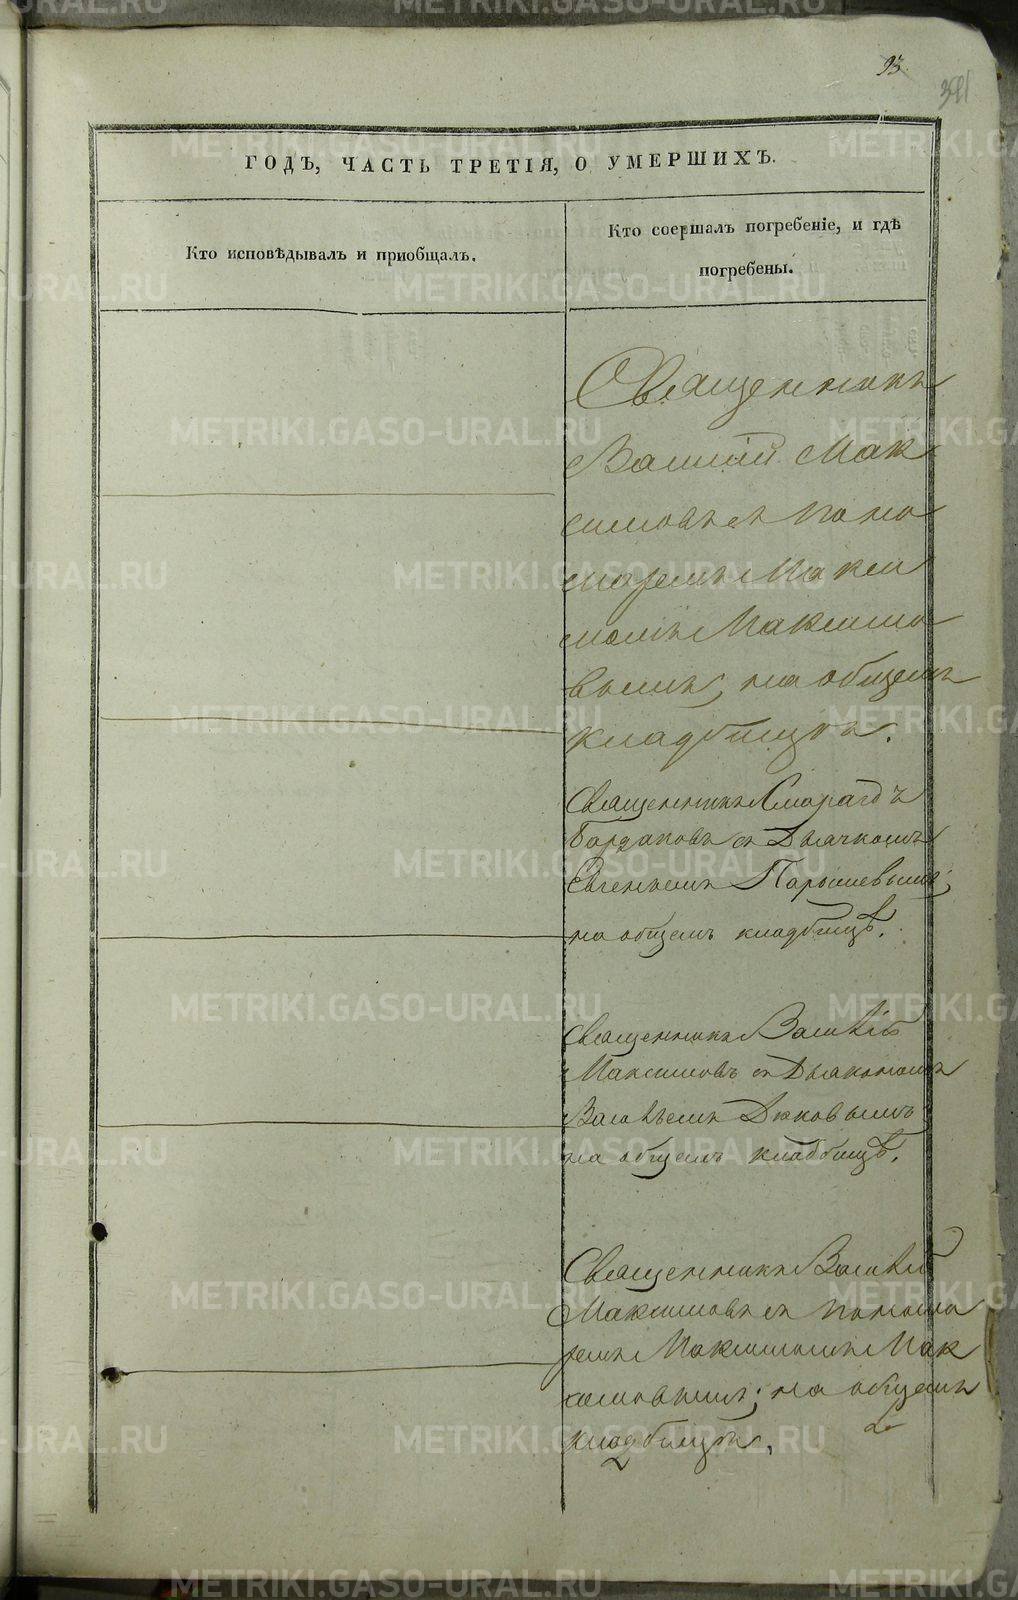 93.
391
ГОДЪ, ЧАСТЬ ТРЕТІЯ, О УМЕРШИХЪ.
Кто исповѣдывалъ и приобщалъ.
Кто соершалъ погребеніе, и гдѣ
погребены.
Священникъ
Василій Мак
симовъ съ поно
маремъ Макси
момъ Максимо
вымъ, на общемъ
кладбищѣ.
Священникъ Смарагдъ
Бардаковъ съ Дьячкомъ
Евгеньемъ Парышевымъ;
на общемъ кладбищѣ.
Священникъ Василій
Максимовъ съ Дьякономъ
Васильемъ Дюковымъ;
на общемъ кладбищѣ.
Священникъ Василій
Максимовъ съ понома
ремъ Максимомъ Мак
симовымъ; на общемъ
кладбищѣ.
METRIKI.GASO-URAL.RU